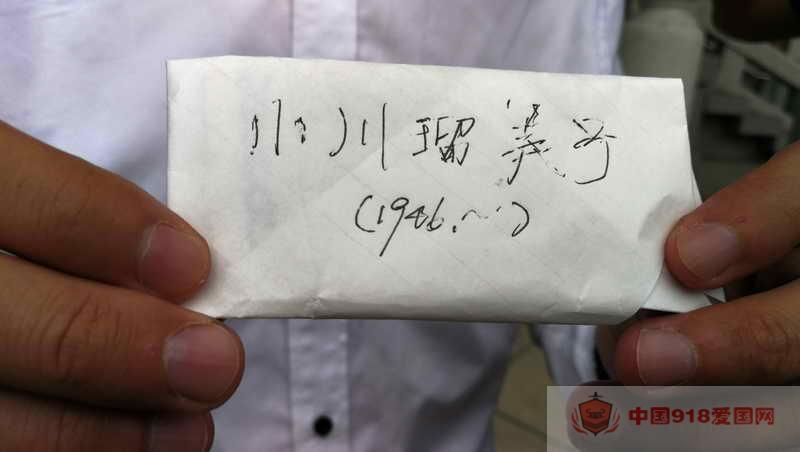 小川瑠美子
(1946.~)
中国918爱国网